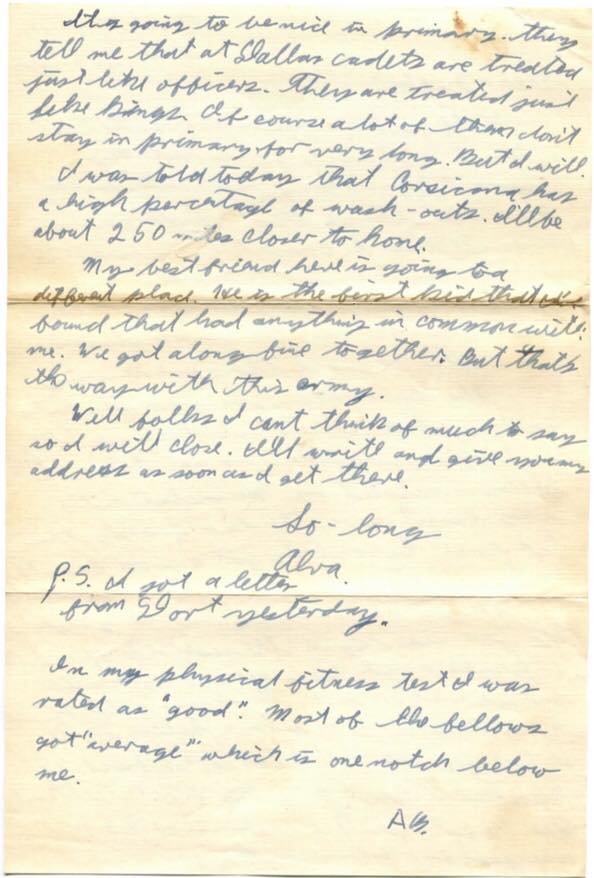 It's going to be nice in primary. They
tell me that at Dallas cadets are treated
just like officers. They are treated just
like kings. Of course a lot of them don't
stay in primary for very long. But I will.
I was told today that Corsicana has
a high percentage of wash-outs. I'll be
about 250 miles closer to home.
My best friend here is going to a
different place. He is the first kid that I've
found that had anything in common with
me. We got along fine together. But that's
the way with this army.
Well folks I can't think of much to say
so I will close. I'll write and give you my
address as soon as I get there.
So-long
Alva.
P.S. I got a letter
from Dort yesterday.
In my physical fitness test I was
rated as "good". Most of the fellows
got "average" which is one notch below
me.
AB.